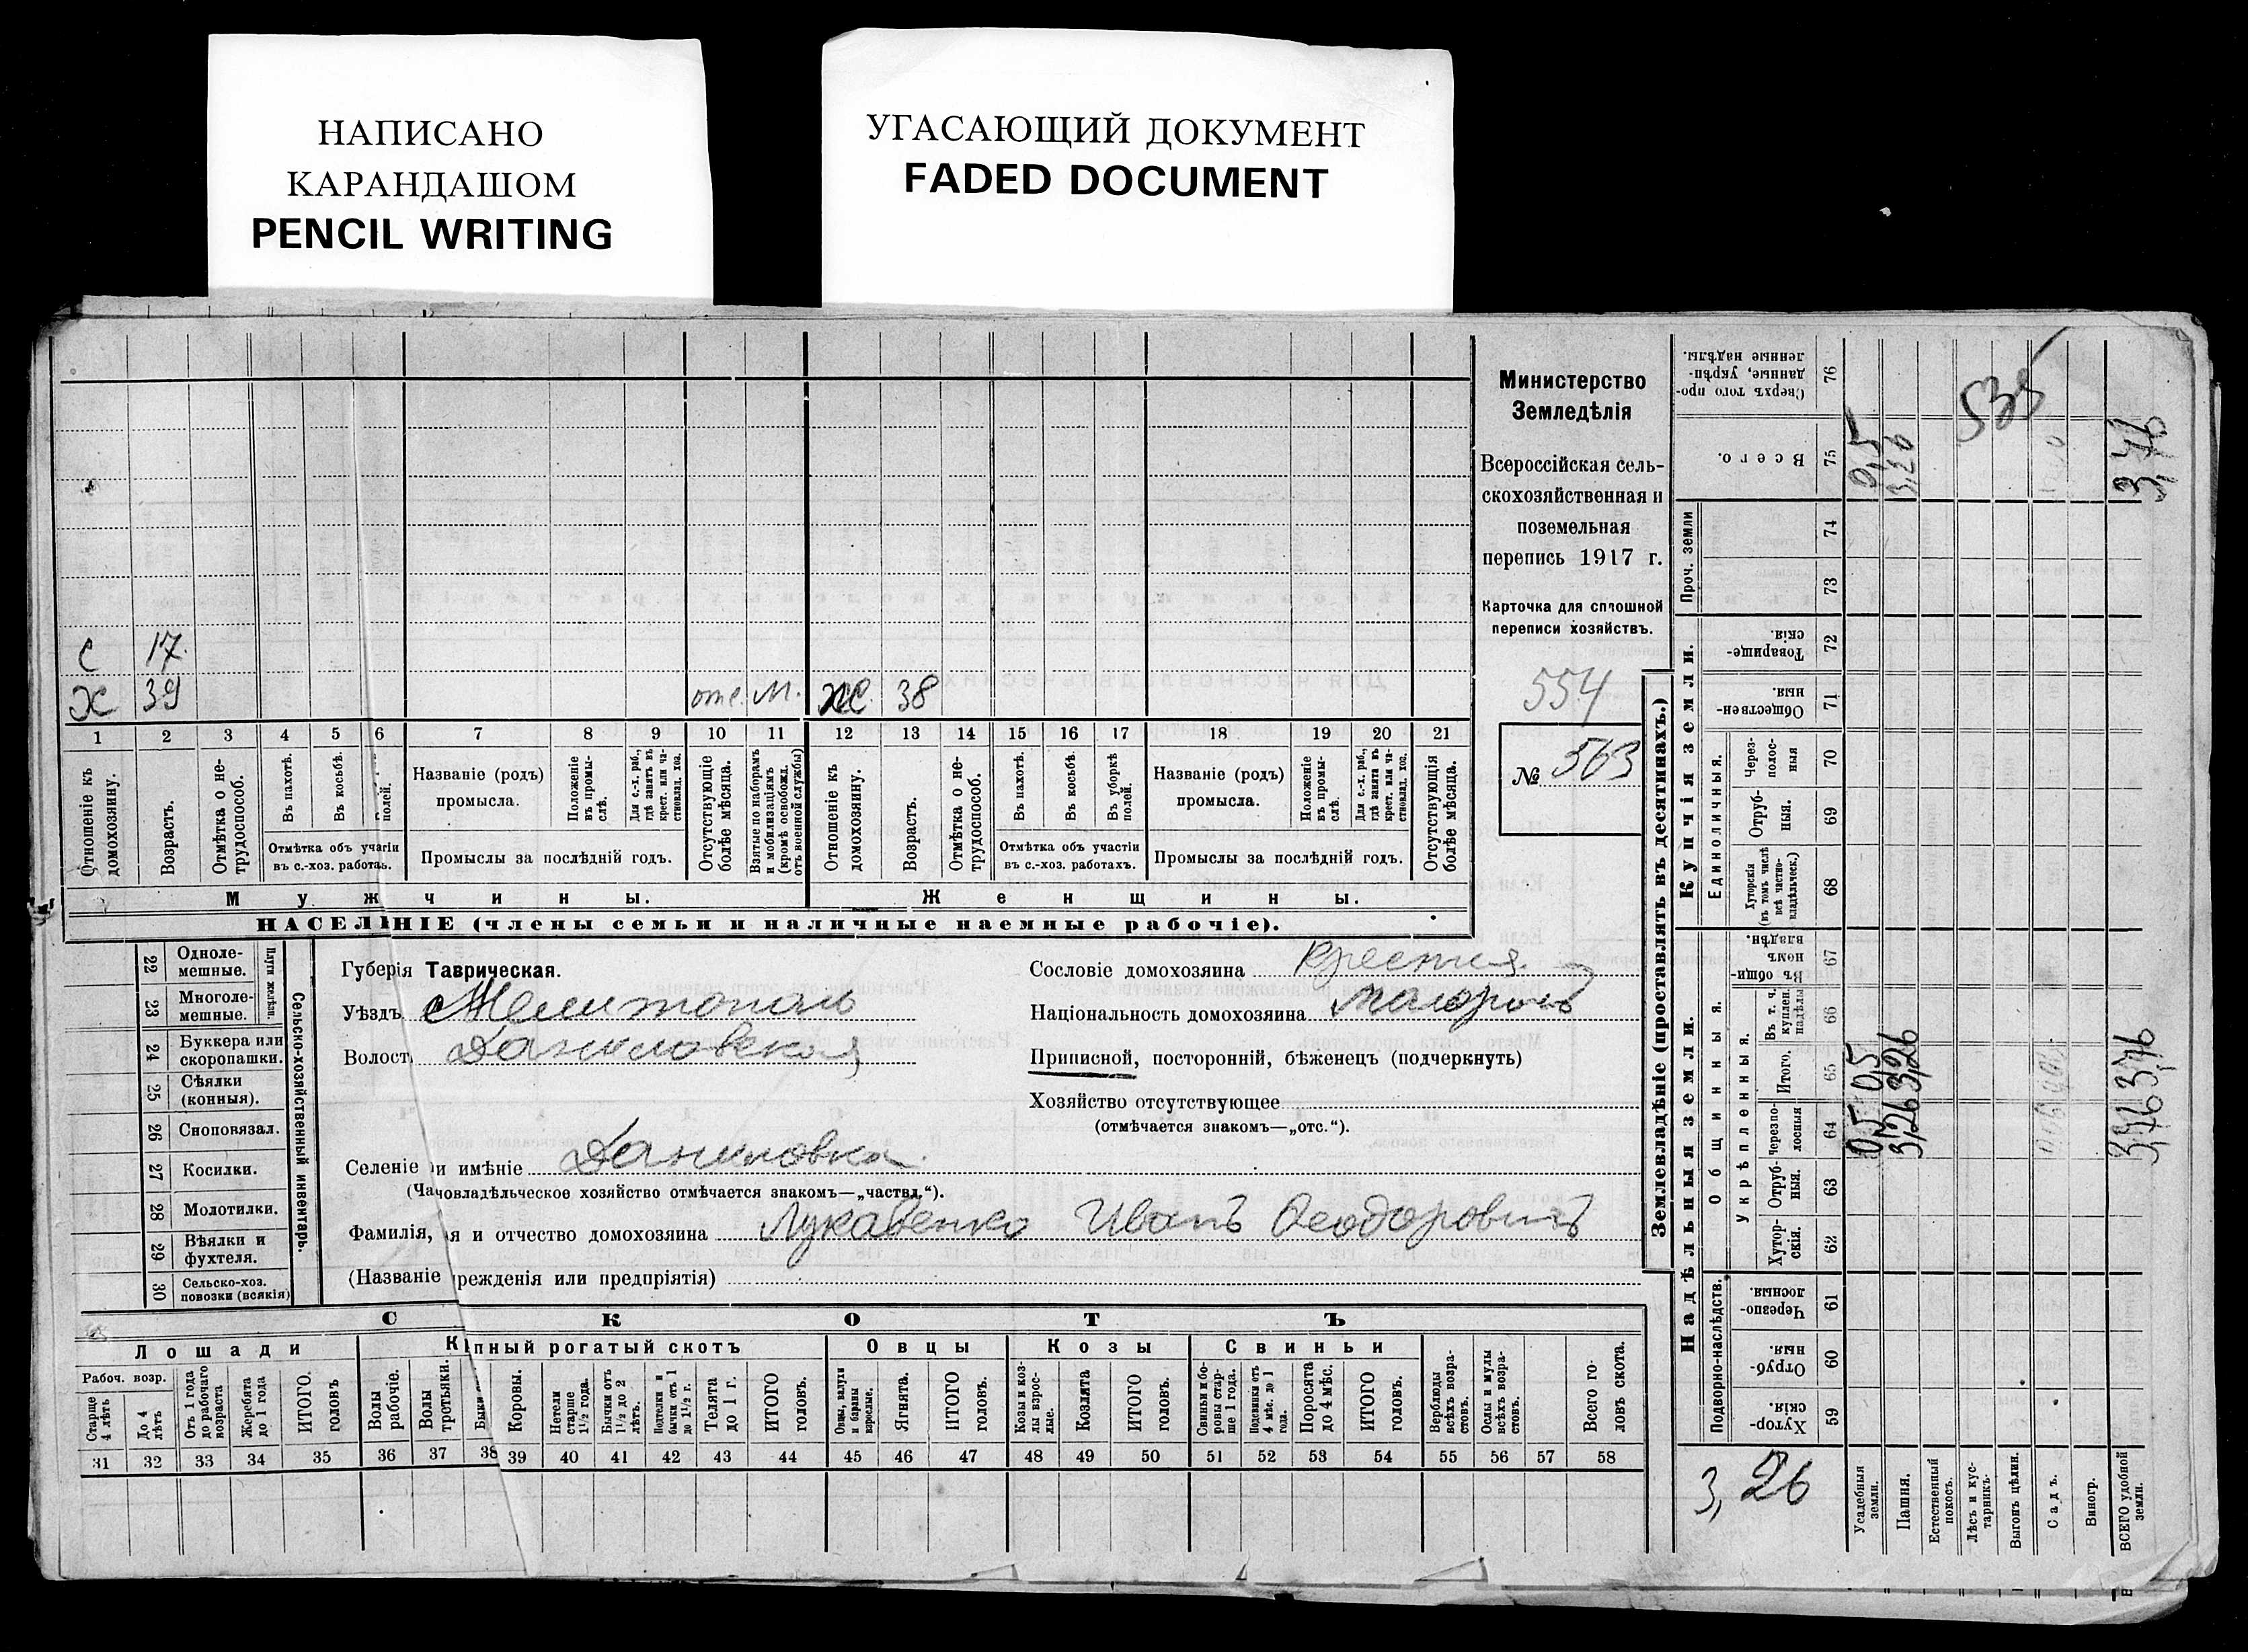 НАПИСАНО
КАРАНДАШОМ
PENCIL WRITING
УГАСАЮЩИЙ ДОКУМЕНТ
FADED DOCUMENT
С 17.
Х 39 отс. М. ж. 38
1 2 3 4 5 6 7 8 9 10 11 12 13 14 15 16 17 18 19 20 21
Отношеніе къ домохозяину.
Возрастъ.
Отмѣтка о нетрудоспособ.
Въ пахотѣ.
Въ косьбѣ.
полей.
Отмѣтка объ участіи
въ с.-хоз. работахъ.
Названіе (родъ)
промысла.
Положеніе въ промыслѣ.
Для с.-х. раб., гдѣ занятъ въ крест. или частновлад. хоз.
Промыслы за послѣдній годъ.
Отсутствующіе болѣе мѣсяца.
Взятые по наборамъ и мобилизаціямъ (кромѣ освобожд. отъ военной службы)
Отношеніе къ домохозяину.
Возрастъ.
Отмѣтка о нетрудоспособ.
Въ пахотѣ.
Въ косьбѣ.
Въ уборкѣ полей.
Отмѣтка объ участіи
въ с.-хоз. работахъ.
Названіе (родъ)
промысла.
Положеніе въ промыслѣ.
Для с.-х. раб., гдѣ занята въ крест. или частновлад. хоз.
Промыслы за послѣдній годъ.
Отсутствующія болѣе мѣсяца.
Мужчины.
Женщины.
НАСЕЛЕНІЕ (члены семьи и наличные наемные рабочіе).
Министерство
Земледѣлія
Всероссійская сель-
скохозяйственная и
поземельная
перепись 1917 г.
Карточка для сплошной
переписи хозяйствъ.
554
№ 563
22 Одноле-
мешные.
23 Многоле-
мешные.
Плуги желѣзн.
24 Буккера или
скоропашки.
25 Сѣялки
(конныя).
26 Сноповязал.
27 Косилки.
28 Молотилки.
29 Вѣялки и
фухтеля.
30 Сельско-хоз.
повозки (всякія)
Сельско-хозяйственный инвентарь.
Губерія Таврическая.
Уѣздъ Мелитополь
Волост Даниловская
Селеніе и имѣніе Даниловка.
(Чановладѣльческое хозяйство отмѣчается знакомъ—„частвл.“).
Фамилія, я и отчество домохозяина Лукавенко Иванъ Ѳеодоровичъ
(Названіе реждёнія или предпріятія)
Сословіе домохозяина Крестья.
Національность домохозяина Малоросъ
Приписной, посторонній, бѣженецъ (подчеркнуть)
Хозяйство отсутствующее
(отмѣчается знакомъ—„отс.“).
СКОТЪ
Лошади
Рабоч. возр.
Старше 4 лѣтъ
До 4 лѣтъ
Отъ 1 года до рабочаго возраста
Жеребята до 1 года
ИТОГО. головъ
К пный рогатый скотъ
Волы рабочіе.
Волы третьяки.
Быки
Коровы.
Нетели старше 1½ года.
Бычки отъ 1½ до 2 лѣтъ.
Подтелки и бычки отъ 1 до 1½ г.
Телята до 1 г.
ИТОГО головъ.
Овцы
Овцы, валухи и бараны взрослые.
Ягнята.
ИТОГО головъ.
Козы
Козы и козлы взрослые.
Козлята
ИТОГО головъ.
Свиньи
Свиньи и боровы старше 1 года.
Подсвинки отъ 4 мѣс. до 1 года.
Поросята до 4 мѣс.
ИТОГО головъ.
Верблюды всѣхъ возрастовъ.
Ослы и мулы всѣхъ возрастовъ.
Всего головъ скота.
31 32 33 34 35 36 37 38 39 40 41 42 43 44 45 46 47 48 49 50 51 52 53 54 55 56 57 58
Землевладѣніе (проставлять въ десятинахъ.)
Купчія земли.
Надѣльныя земли.
76 Сверхъ того проданные, укрѣпленные надѣлы.
75 Всего. 0,5 3,26 3,76
535
Проч. земли
74
73
72 Товарищескія.
71 Общественныя.
Единоличныя.
70 Черезполосныя
69 Отрубныя.
68 Хуторскія (въ томъ числѣ всѣ частновладѣльческ.)
Общинныя.
67 Въ общиномъ владѣн.
Укрѣпленныя.
66 Въ т. ч. куплен. надѣлы
65 Итого. 0,5 3,26 3,76
64 Черезполосныя 0,5 3,26 3,76
63 Отрубныя.
62 Хуторскія.
Подворно-наслѣдств.
61 Черезполосныя.
60 Отрубныя.
59 Хуторскія.
3,26
Усадебныя земли.
Пашня.
Естественный покосъ.
Лѣсъ и кустарникъ.
Выгонъ цѣлин.
Садъ.
Виногр.
ВСЕГО удобной земли.